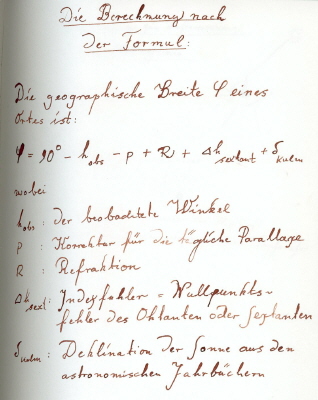 Die Berechnung nach
der Formul:
Die geographische Breite φ eines
Ortes ist:
φ = 90° - h_obs - p + R + Δh_sextant + δ_kulm
wobei
h_obs : der beobachtete Winkel
p : Korrektur für die tägliche Parallaxe
R : Refraktion
Δh_sext : Indexfehler = Nullpunkts-
fehler des Oktanten oder Sextanten
δ_kulm : Deklination der Sonne aus den
astronomischen Jahrbüchern